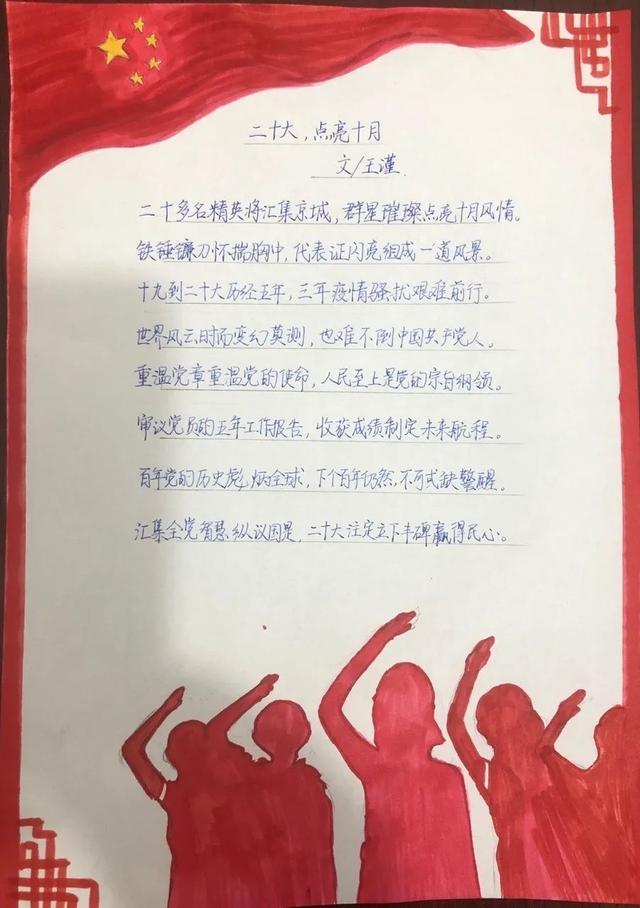 二十大，点亮十月
文/王瑾
二十多名精英将汇集京城，群星璀璨点亮十月风情。
铁锤镰刀怀揣胸中，代表证闪亮组成一道风景。
十九到二十大历经五年，三年疫情骚扰艰难前行。
世界风云时而变幻莫测，也难不倒中国共产党人。
重温党章重温党的使命，人民至上是党的宗旨纲领。
审议党员的五年工作报告，收获成绩制定未来航程。
百年党的历史彪炳全球，下个百年仍然不可或缺警醒。
汇集全党智慧纵议国是，二十大注定立下丰碑赢得民心。